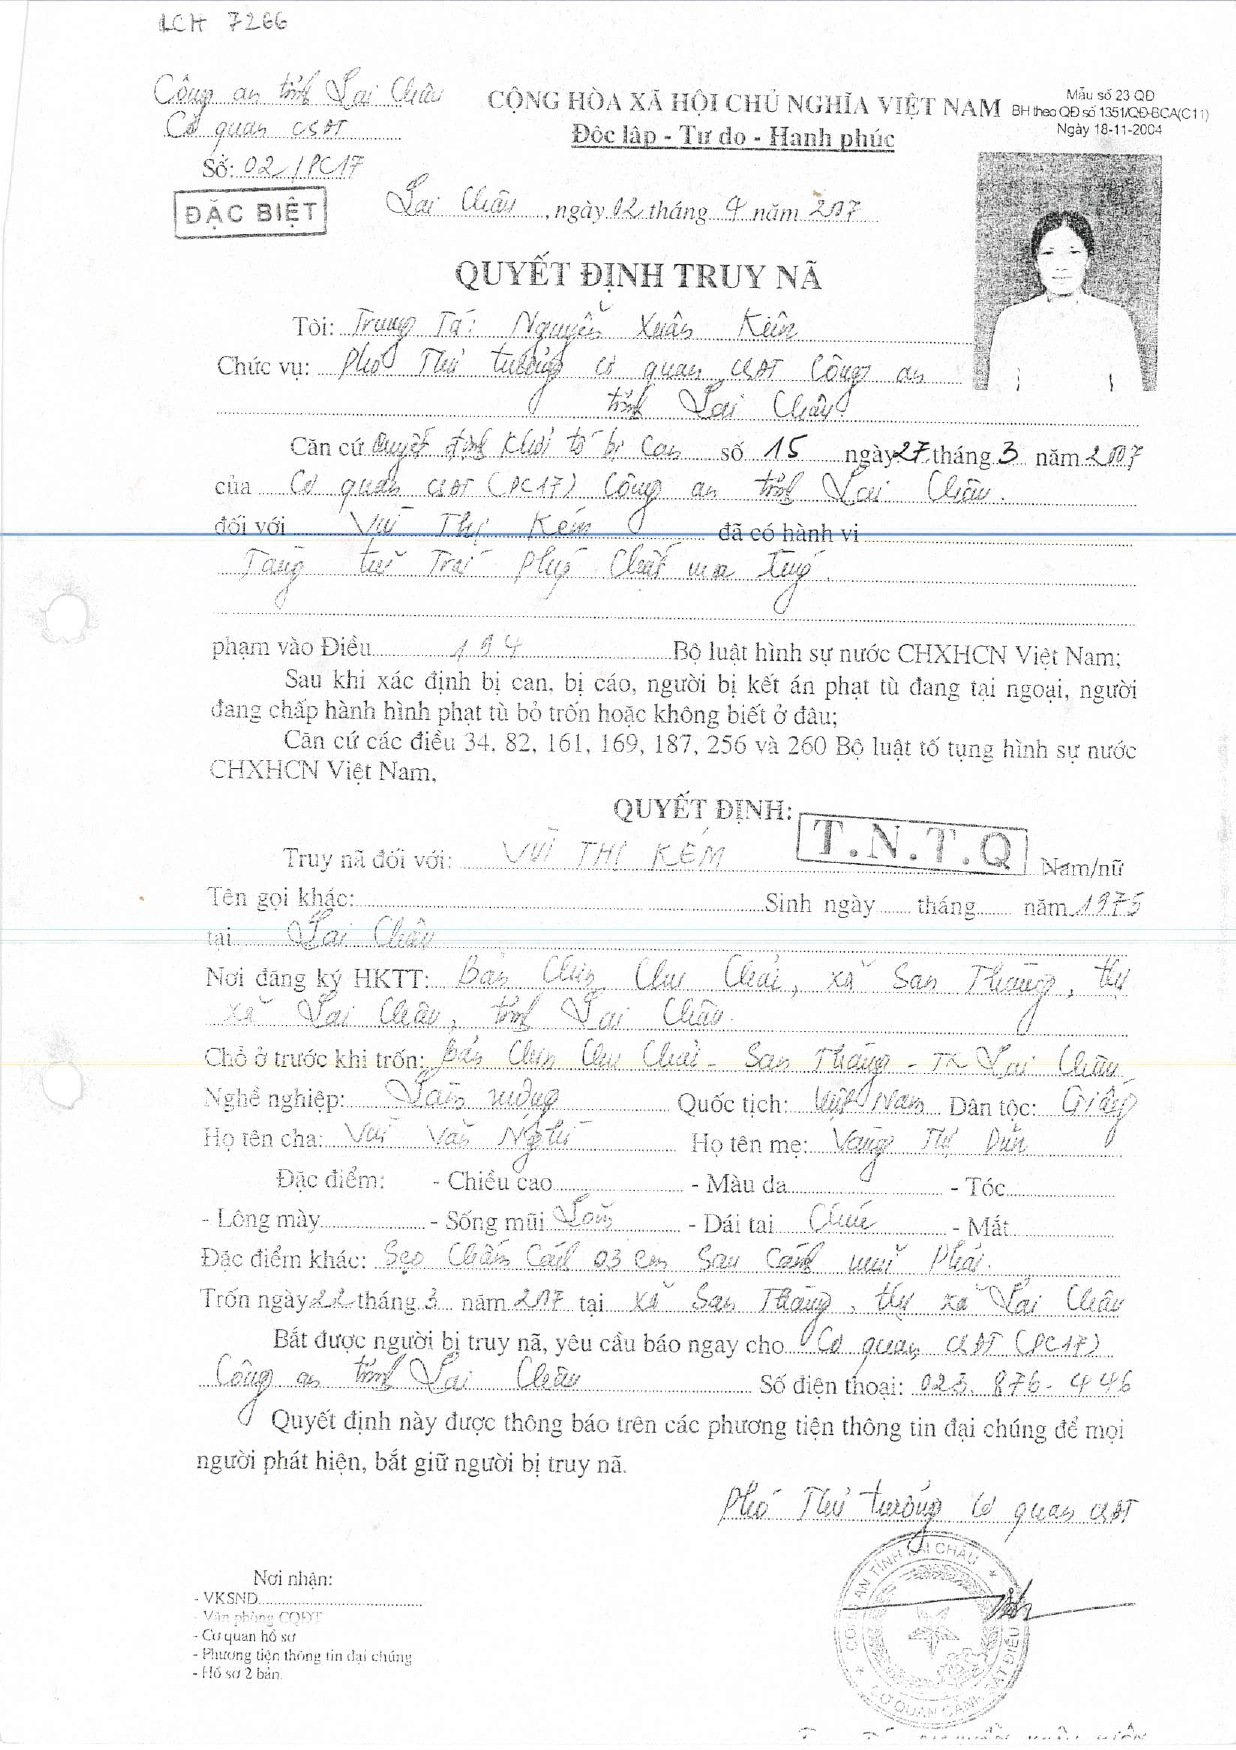 LCH 7266
Công an tỉnh Lai Châu
Cơ quan CSĐT
Số: 02/PC17
ĐẶC BIỆT
CỘNG HÒA XÃ HỘI CHỦ NGHĨA VIỆT NAM
Độc lập - Tự do - Hạnh phúc
Mẫu số 23 QĐ
BH theo QĐ số 1351/QĐ-BCA(C11)
Ngày 18-11-2004
Lai Châu, ngày 02 tháng 4 năm 2007
QUYẾT ĐỊNH TRUY NÃ
Tôi: Trung Tá: Nguyễn Xuân
Chức vụ: Phó Thủ trưởng cơ quan CSĐT Công an
tỉnh Lai Châu
Căn cứ Quyết định khởi tố bị can số 15 ngày 27 tháng 3 năm 2007
của Cơ quan CSĐT (PC17) Công an tỉnh Lai Châu.
đối với Vùi Thị Kém đã có hành vi
Tàng trữ Trái phép Chất ma túy.
phạm vào Điều 194 Bộ luật hình sự nước CHXHCN Việt Nam;
Sau khi xác định bị can, bị cáo, người bị kết án phạt tù đang tại ngoại, người
đang chấp hành hình phạt tù bỏ trốn hoặc không biết ở đâu;
Căn cứ các điều 34, 82, 161, 169, 187, 256 và 260 Bộ luật tố tụng hình sự nước
CHXHCN Việt Nam,
QUYẾT ĐỊNH:
T.N.T.Q
Truy nã đối với: VÙI THỊ KÉM Nam/nữ
Tên gọi khác: Sinh ngày tháng năm 1975
tại Lai Châu
Nơi đăng ký HKTT: Bản Chin Chu Chải, xã San Thàng, thị
xã Lai Châu, tỉnh Lai Châu.
Chỗ ở trước khi trốn: Bản Chin Chu Chải - San Thàng - TX Lai Châu
Nghề nghiệp: Làm ruộng Quốc tịch: Việt Nam Dân tộc: Giấy
Họ tên cha: Vùi Văn Họ tên mẹ: Vàng Thị
Đặc điểm: - Chiều cao - Màu da - Tóc
- Lông mày - Sống mũi Lõm - Dái tai Chúc - Mắt
Đặc điểm khác: Sẹo Chấm Cách 03 cm Sau Cánh mũi Phải.
Trốn ngày 22 tháng 3 năm 2007 tại xã San Thàng, thị xã Lai Châu
Bắt được người bị truy nã, yêu cầu báo ngay cho Cơ quan CSĐT (PC17)
Công an tỉnh Lai Châu Số điện thoại: 023.876.446
Quyết định này được thông báo trên các phương tiện thông tin đại chúng để mọi
người phát hiện, bắt giữ người bị truy nã.
Phó Thủ trưởng Cơ quan CSĐT
Nơi nhận:
- VKSND
- Văn phòng CQĐT
- Cơ quan hồ sơ
- Phương tiện thông tin đại chúng
- Hồ sơ 2 bản.
CÔNG AN TỈNH LAI CHÂU
CƠ QUAN CẢNH SÁT ĐIỀU